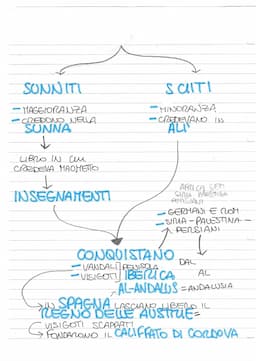 SUNNITI
- MAGGIORANZA
- CREDONO NELLA
SUNNA
LIBRO IN CUI
CREDEVA MAOMETTO
INSEGNAMENTI
SCIITI
- MINORANZA
- CREDEVANO IN
ALÌ
- GERMANI E ROM
- SIRIA - PALESTINA -
PERSIANI
CONQUISTANO
- VANDALI PENISOLA DAL
- VISIGOTI IBERICA AL
AL-ANDALUS = ANDALUSIA
IN SPAGNA LASCIANO LIBERO IL
REGNO DELLE AUSTRIE =
VISIGOTI SCAPPATI
FONDARONO IL CALIFFATO DI CORDOVA